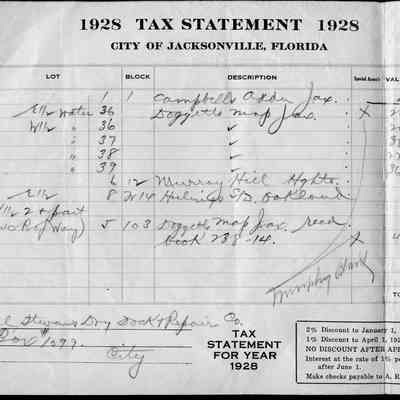 1928 TAX STATEMENT 1928
CITY OF JACKSONVILLE, FLORIDA
LOT BLOCK DESCRIPTION Special Assess't VAL
1 1 Campbells Addn Jax.
E½ Water 36 Doggetts Map Jax. X
W½ " 36 ✓
" 37 ✓
" 38 ✓
" 39 ✓
6 12 Murray Hill Hghts.
E½ 8 W14 S/D Oakland
2 & part 5 103 Doggetts Map Jax. read
R of Way) book 238-14. X
Murphy
Stevens Dry Dock & Repair Co.
Box 1099.
City
TAX
STATEMENT
FOR YEAR
1928
2% Discount to January 1,
1% Discount to April 1, 192
NO DISCOUNT AFTER APR
Interest at the rate of 1% pe
after June 1.
Make checks payable to A. R